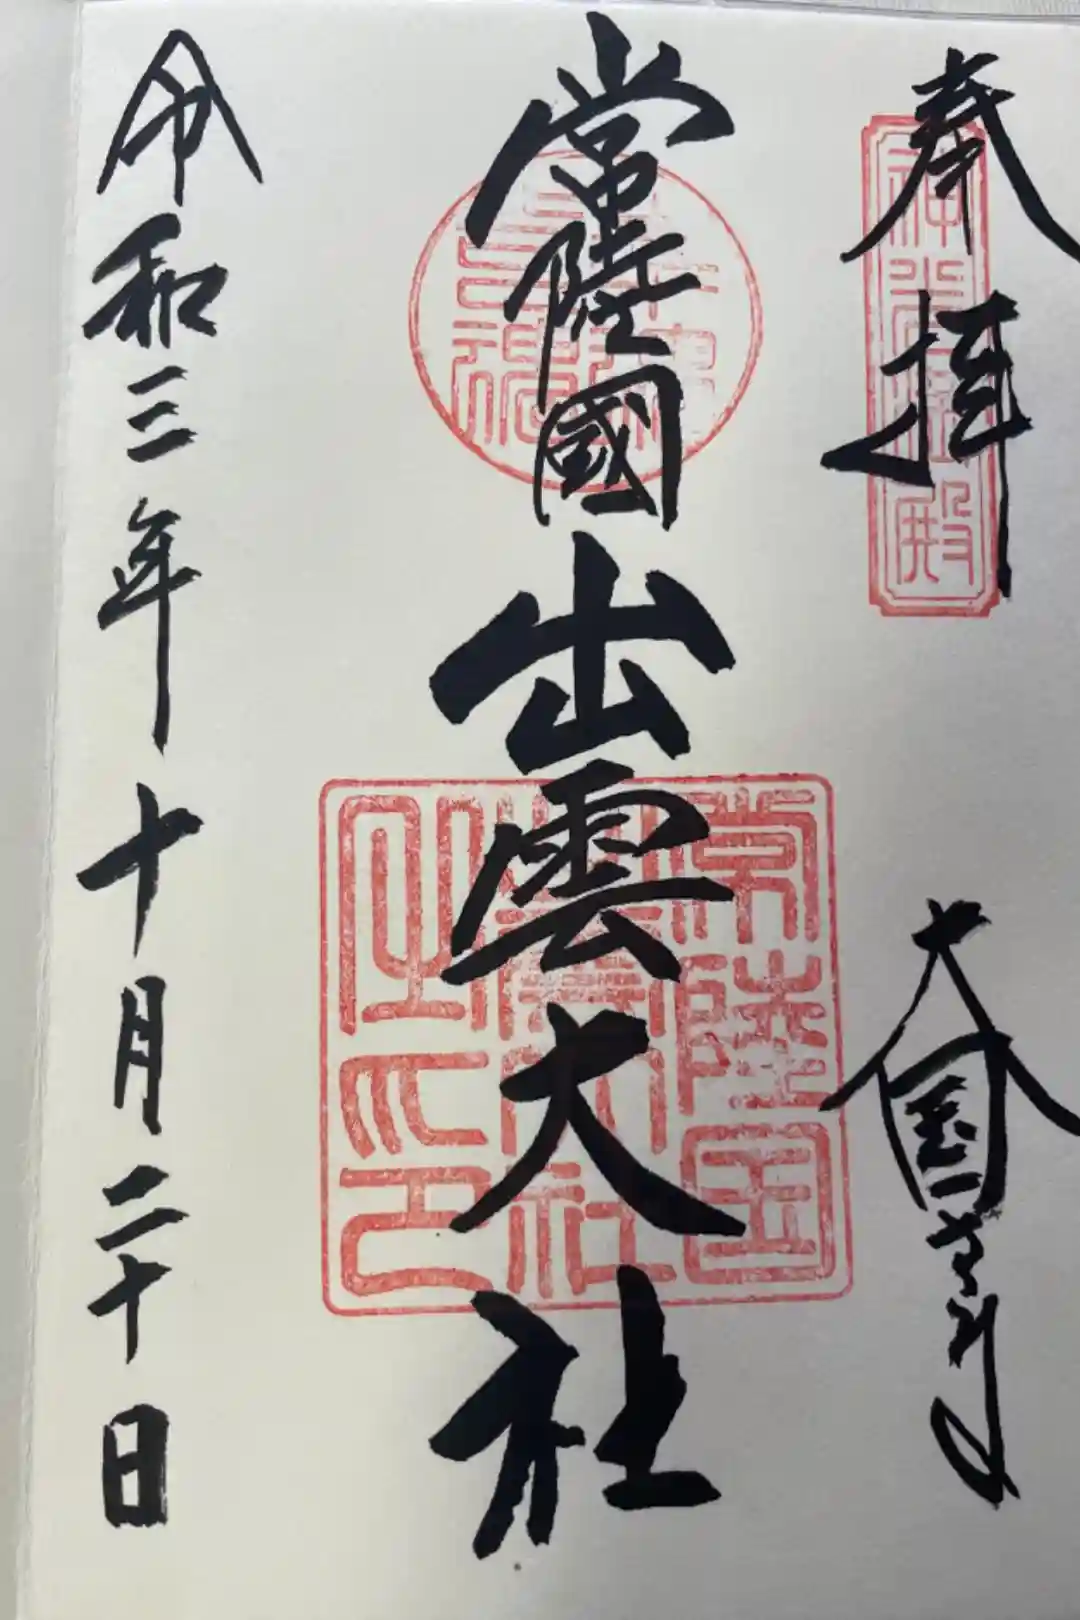 奉拝
大国
常陸國出雲大社
常陸国
出雲大社
之印
令和三年十月二十日